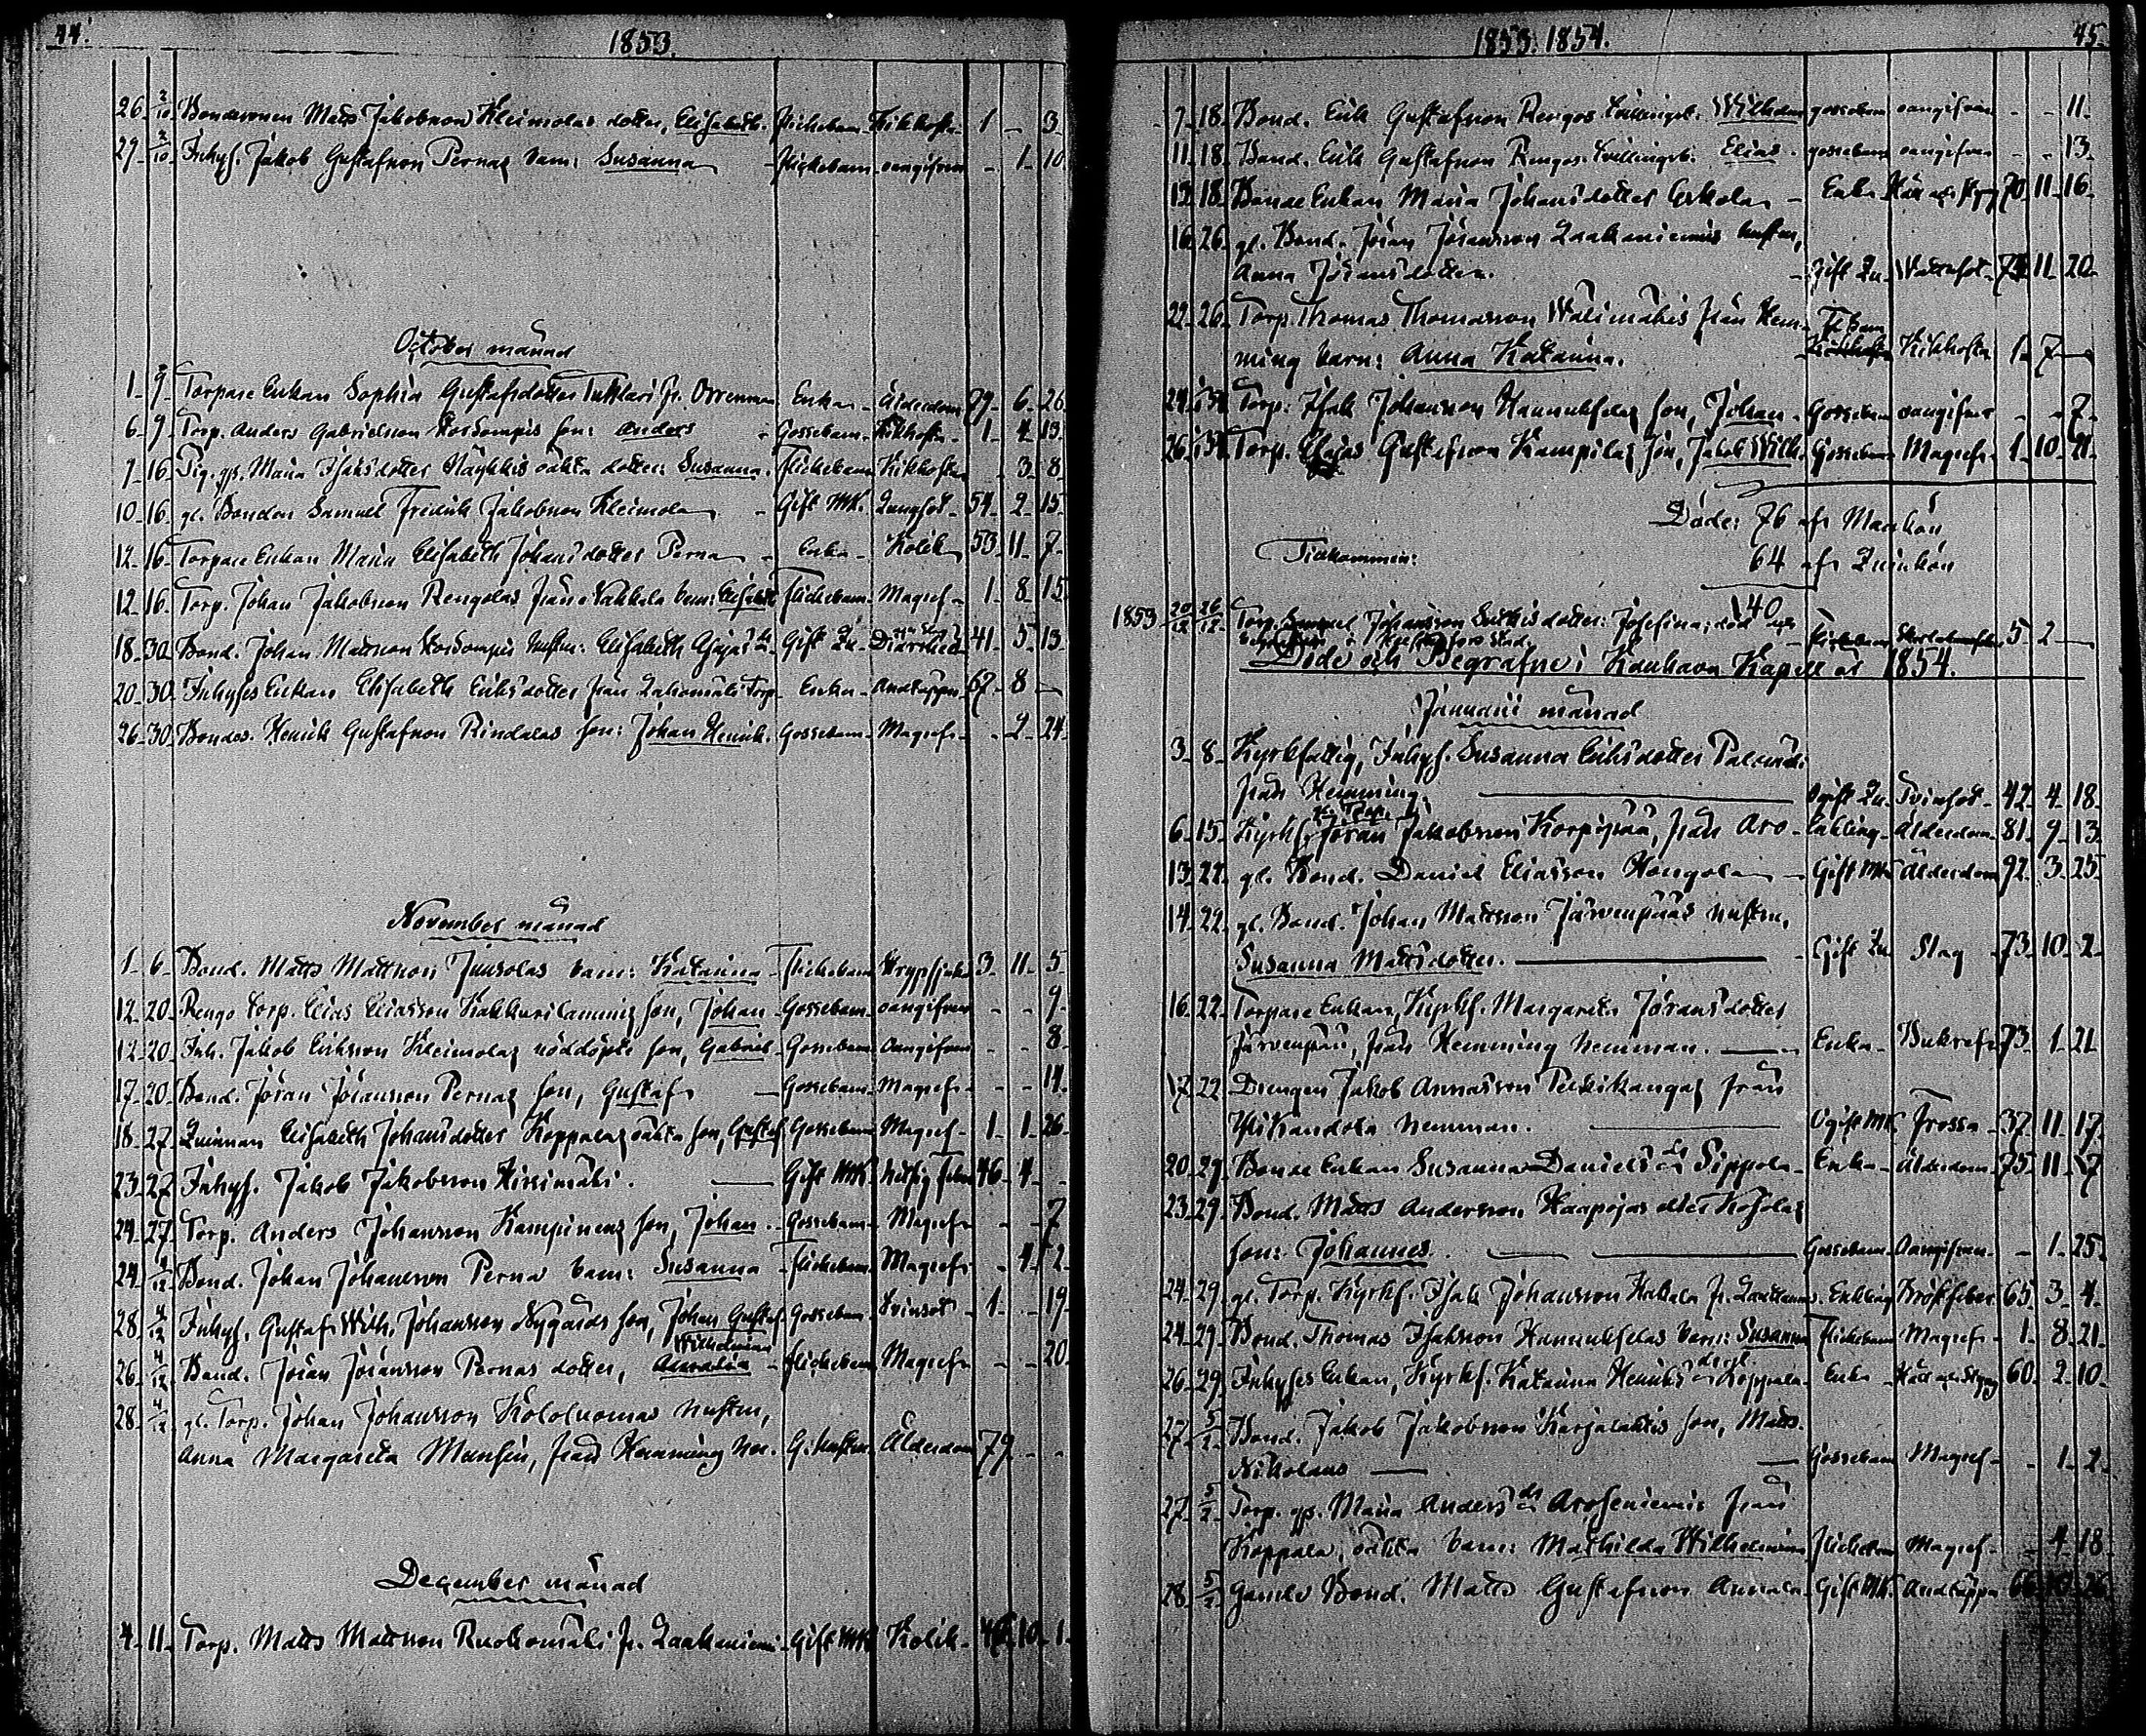 44.
1853.
26 2/10 Bondesonen Matts Jakobson Kleimolas dotter, Elisabeth. Flickebarn Kikhosta 1 - 3
29 2/10 Inhys. Jakob Gustafsson Pernas barn: Susanna Flickebarn oangifven - 1 10
October månad
1 9 Torpare Enkan Sophia Gustafsdotter fr. Enka Ålderdom 79 6 26
6 9 Torp. Anders Gabrielsson Korsompis son: Anders Gossebarn Kikhosta 1 4 13
7 16 Pig. gps. Maria Isaksdotter oäkta dotter: Susanna. Flickebarn Kikhosta - 3 8
10 16 gl. Bonden Samuel Fredrik Jakobson Kleimola Gift MK. Lungsot 54 2 15
12 16 Torpare Enkan Maria Elisabeth Johansdotter Perna Enka Kolik 53 11 7
12 16 Torp. Johan Jakobsson Rengolas från Vakkala barn: Elisabeth Flickebarn Magref 1 8 15
18 30 Bond. Johan Mattsson Korsompis hustru: Elisabeth Gift Qu. Diarrhee 41 5 13
20 30 Inhyses Enkan Elisabeth Eriksdotter från Torp Enka Andtäppa 67 8 -
26 30 Bondes. Henrik Gustafsson Rindalas son: Johan Henrik. Gossebarn Magref - 2 24
November månad
1 6 Bond. Matts Mattson Juusolas barn: Katarina Flickebarn Strypsjuka 3 11 5
12 20 Rengo torp. Elias Eliasson son, Johan Gossebarn oangifven - - 9
12 20 Inh. Jakob Eriksson Kleimolas nöddöpte son, Gabriel Gossebarn Oangifven - - 8
17 20 Bond. Jöran Jöransson Pernas son, Gustaf Gossebarn Magref - - 14
18 27 Quinnan Elisabeth Johansdotter Koppalas oäkta son, Gustaf Gossebarn Magref 1 1 26
23 27 Inhys. Jakob Jakobsson Hirsimäki. Gift MK. Hetsig Feber 46 4 -
24 27 Torp. Anders Johansson Kampinens son, Johan. Gossebarn Magref - - 7
24 4/12 Bond. Johan Johansson Perna barn: Susanna Flickebarn Magref - 4 2
28 4/12 Inhys. Gustaf Wilh. Johansson Nygårds son, Johan Gustaf Gossebarn Tvinsot 1 - 19
Wilhelmina
26 4/12 Bond. Jöran Jöransson Pernas dotter, Flickebarn Magref - - 20
28 4/12 gl. Torp. Johan Johansson Kololuomas hustru,
Anna Margareta Mansin, från Hemming hem. G. hustru Ålderdom 79 - -
December månad
4 11 Torp. Matts Mattson Ruokomäki fr. Laakaniemi Gift MK Kolik 10 1
1853. 1854.
45.
7 18 Bond. Erik Gustafsson Rengos tvillingsb. Wilhelm gossebarn oangifven - - 11
11 18 Bond. Erik Gustafsson Rengos tvillingsb. Elias. gossebarn oangifven - - 13
13 18 Bonde Enkan Maria Johansdotter Erkola Enka Håll och Styng 70 11 16
16 26 gl. Bond. Jöran Jöransson Laakaniemis hustru,
Anna Jöransdotter. Gift Qu. Vattusot 11 20
22 26 Torp. Thomas Thomasson Välimäkis från Hem-
ming barn: Anna Katarina. Fl. barn Kikhosta 1 7 -
24 Torp. Isak Johansson Hannukselas son, Johan Gossebarn oangifven - - 7
26 Torp. Elias Gustafsson Kampilas son, Jakob Wilh. Gossebarn Magref 1 10 21
Döde: 76 af Mankön
Tillkommen: 64 af Quinkön
140
1853 20/12 26/12 Torp. Samuel Johansson dotter: Josefina; död 5 2 -
Stad.
Döde och Begrafne i Kauhava Kapell år 1854.
Januarii månad
3 8 Kyrkfattig, Inhys. Susanna Eriksdotter Palomäki
från Hemming. Ogift Qu. Tvinsot 42 4 18
gl. Torp.
6 15 Kyrkf. Jöran Jakobsson Korpipää, från Aro Enkling Ålderdom 81 9 13
13 22 gl. Bond. Daniel Eliasson Kangola Gift MK Ålderdom 72 3 25
14 22 gl. Bond. Johan Mattson Järvenpääs hustru,
Susanna Mattsdotter. Gift Qu. Slag 73 10 2
16 22 Torpare Enkan, Kyrkf. Margareta Jöransdotter
Järvenpää, från Hemming hemman. Enka Bukref 73 1 21
17 22 Drengen Jakob Annasson Pelkikangas från
hemman. Ogift MK. Frossa 37 11 17
20 29 Bonde Enkan Susanna Daniels dr Sippola Enka Ålderdom 75 11 17
23 29 Bond. Matts Andersson Haapojas eller Kojolas
son: Johannes. Gossebarn Oangifven - 1 25
24 29 gl. Torp. Kyrkf. Isak Johansson Hakala fr. Enkling Bröstfeber 65 3 4
24 29 Bond. Thomas Isaksson Hannukselas barn: Susanna Flickebarn Magref 1 8 21
26 29 Inhyses Enkan, Kyrkf. Katarina Henriks dr Koppala Enka Håll och Styng 60 2 10
27 5/2 Bond. Jakob Jakobsson Karjalahtis son, Matts
Nikolaus Gossebarn Magref - 1 2
27 5/2 Torp. gps. Maria Anders dr Aroseniemi från
Koppala, oäkta barn: Mathilda Wilhelmina Flickebarn Magref - 4 18
28 5/2 Gamle Bond. Matts Gustafsson Annala Gift MK. Andtäppa 66 10 26